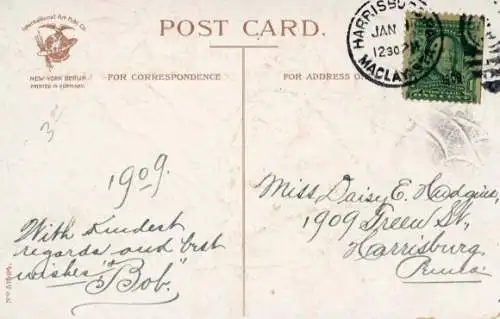 International Art Pub. Co.
NEW-YORK BERLIN
PRINTED IN GERMANY.
POST CARD.
FOR CORRESPONDENCE
FOR ADDRESS
HARRISBURG
JAN
12 30 P
MACLAY
1909.
With kindest
regards and best
wishes, "Bob."
Miss Daisy E. Hudgins,
1909 Green St,
Harrisburg
Penna.